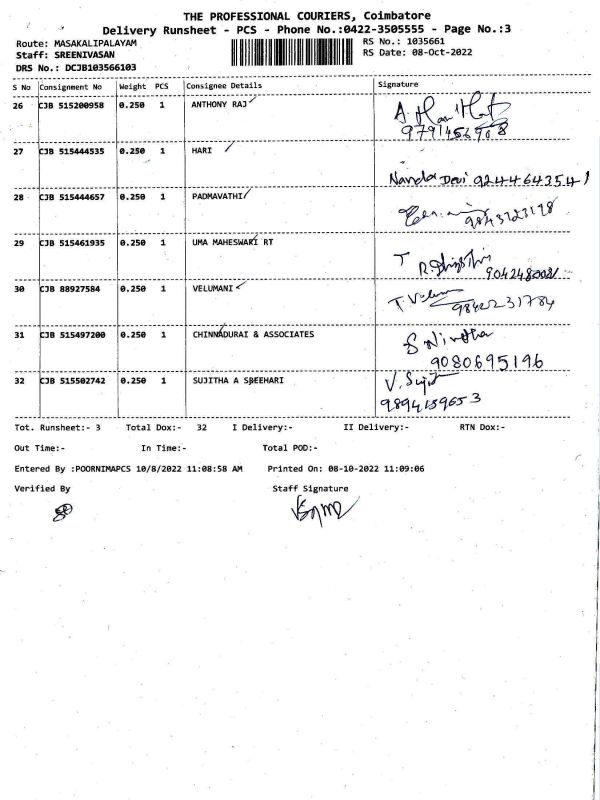 THE PROFESSIONAL COURIERS, Coimbatore
Delivery Runsheet - PCS - Phone No.:0422-3505555 - Page No.:3
Route: MASAKALIPALAYAM
RS No.: 1035661
Staff: SREENIVASAN
RS Date: 08-Oct-2022
DRS No.: DCJB103566103
S No Consignment No Weight PCS Consignee Details Signature
26 CJB 515200958 0.250 1 ANTHONY RAJ
27 CJB 515444535 0.250 1 HARI
Nanda Devi 9244643541
28 CJB 515444657 0.250 1 PADMAVATHI
29 CJB 515461935 0.250 1 UMA MAHESWARI RT
30 CJB 88927584 0.250 1 VELUMANI
31 CJB 515497200 0.250 1 CHINNADURAI & ASSOCIATES
9080695196
32 CJB 515502742 0.250 1 SUJITHA A SREEHARI
9894159653
Tot. Runsheet:- 3 Total Dox:- 32 I Delivery:- II Delivery:- RTN Dox:-
Out Time:- In Time:- Total POD:-
Entered By :POORNIMAPCS 10/8/2022 11:08:58 AM Printed On: 08-10-2022 11:09:06
Verified By Staff Signature